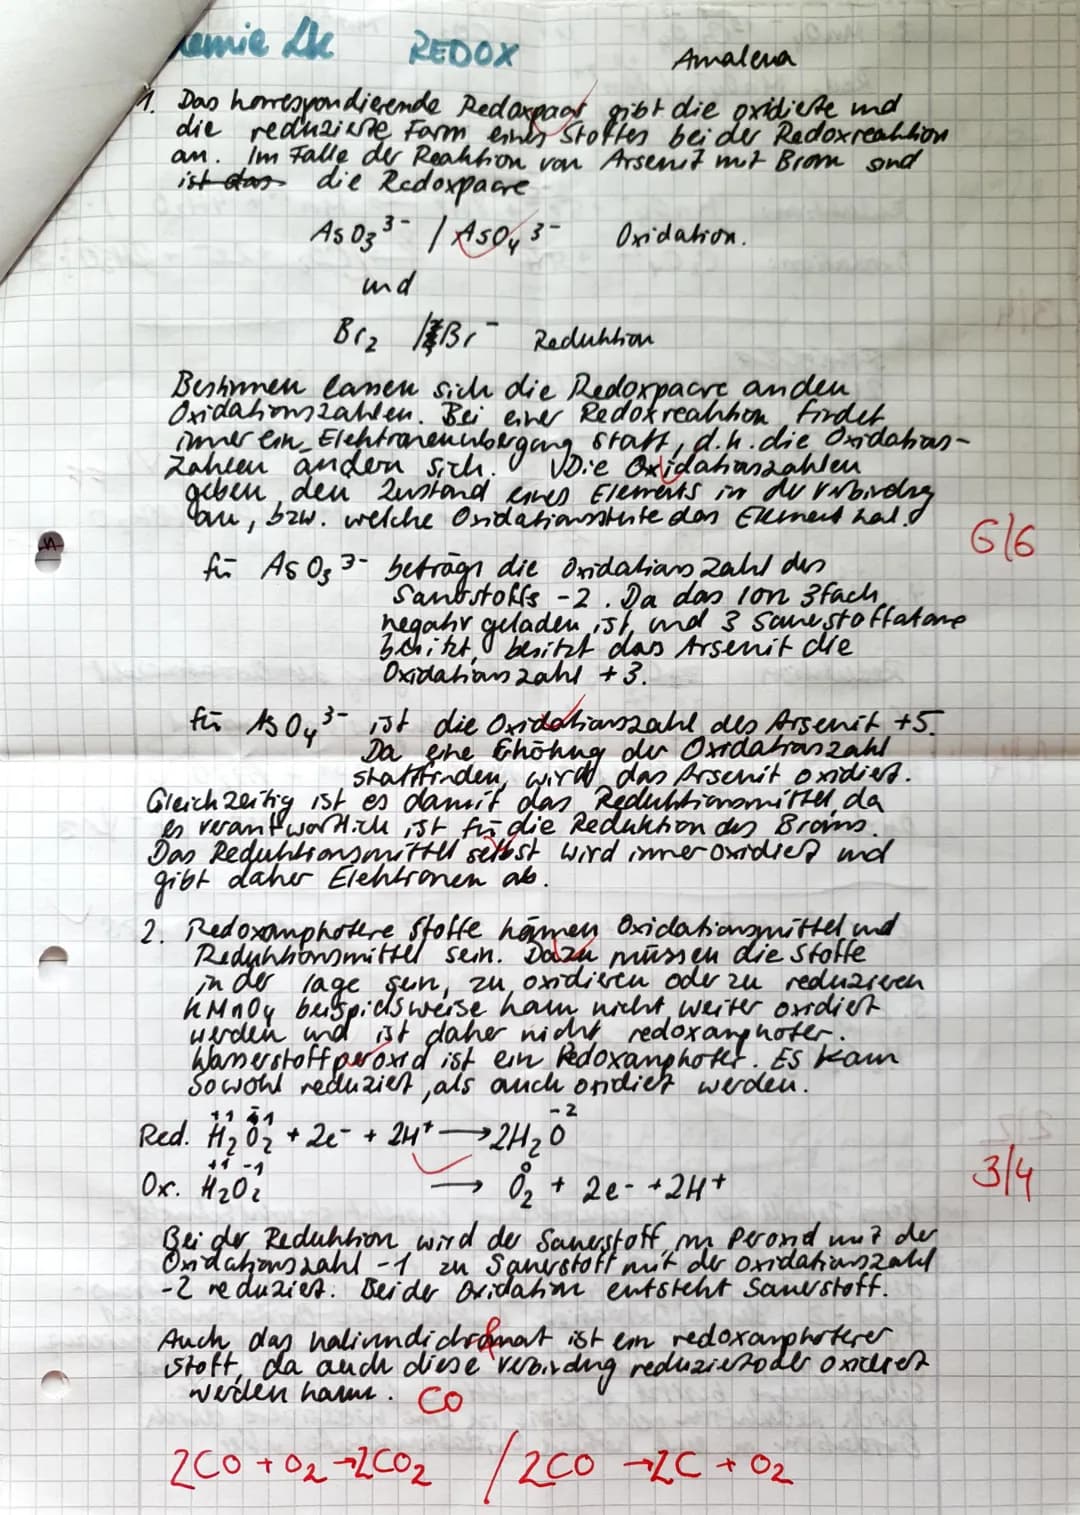 emie Lk REDOX Amalena
1. Das korrespondierende Redoxpaar gibt die oxidierte und
die reduzierte Form eines Stoffes bei der Redoxreaktion
an. Im Falle der Reaktion von Arsenit mit Brom sind
ist das die Redoxpaare
AsO₃³⁻ / AsO₄³⁻ Oxidation.
und
Br₂ / Br⁻ Reduktion
Bestimmen lassen sich die Redoxpaare an den
Oxidationszahlen. Bei einer Redoxreaktion findet
immer ein Elektronenübergang statt, d.h. die Oxidations-
zahlen ändern sich. Die Oxidationszahlen
geben den Zustand eines Elements in der Verbindung
an, bzw. welche Oxidationsstufe das Element hat.
6/6
für AsO₃³⁻ beträgt die Oxidationszahl des
Sauerstoffs -2. Da das Ion 3fach
negativ geladen ist und 3 Sauerstoffatome
besitzt, besitzt das Arsenit die
Oxidationszahl +3.
für AsO₄³⁻ ist die Oxidationszahl des Arsenit +5.
Da eine Erhöhung der Oxidationszahl
stattfinden, wird das Arsenit oxidiert.
Gleichzeitig ist es damit das Reduktionsmittel, da
es verantwortlich ist für die Reduktion des Broms.
Das Reduktionsmittel selbst wird immer oxidiert und
gibt daher Elektronen ab.
2. Redoxamphotere Stoffe können Oxidationsmittel und
Reduktionsmittel sein. Dazu müssen die Stoffe
in der Lage sein, zu oxidieren oder zu reduzieren
KMnO₄ beispielsweise kann nicht weiter oxidiert
werden und ist daher nicht redoxamphoter.
Wasserstoffperoxid ist ein Redoxamphoter. Es kann
sowohl reduziert, als auch oxidiert werden.
+1 -1 -2
Red. H₂O₂ + 2e⁻ + 2H⁺ → 2H₂O
+1 -1 0
Ox. H₂O₂ → O₂ + 2e⁻ + 2H⁺
3/4
Bei der Reduktion wird der Sauerstoff im Peroxid mit der
Oxidationszahl -1 zu Sauerstoff mit der Oxidationszahl
-2 reduziert. Bei der Oxidation entsteht Sauerstoff.
Auch das Kaliumdichromat ist ein redoxamphoterer
Stoff, da auch diese Verbindung reduziert oder oxidiert
werden kann. CO
2CO + O₂ → 2CO₂ / 2CO → 2C + O₂